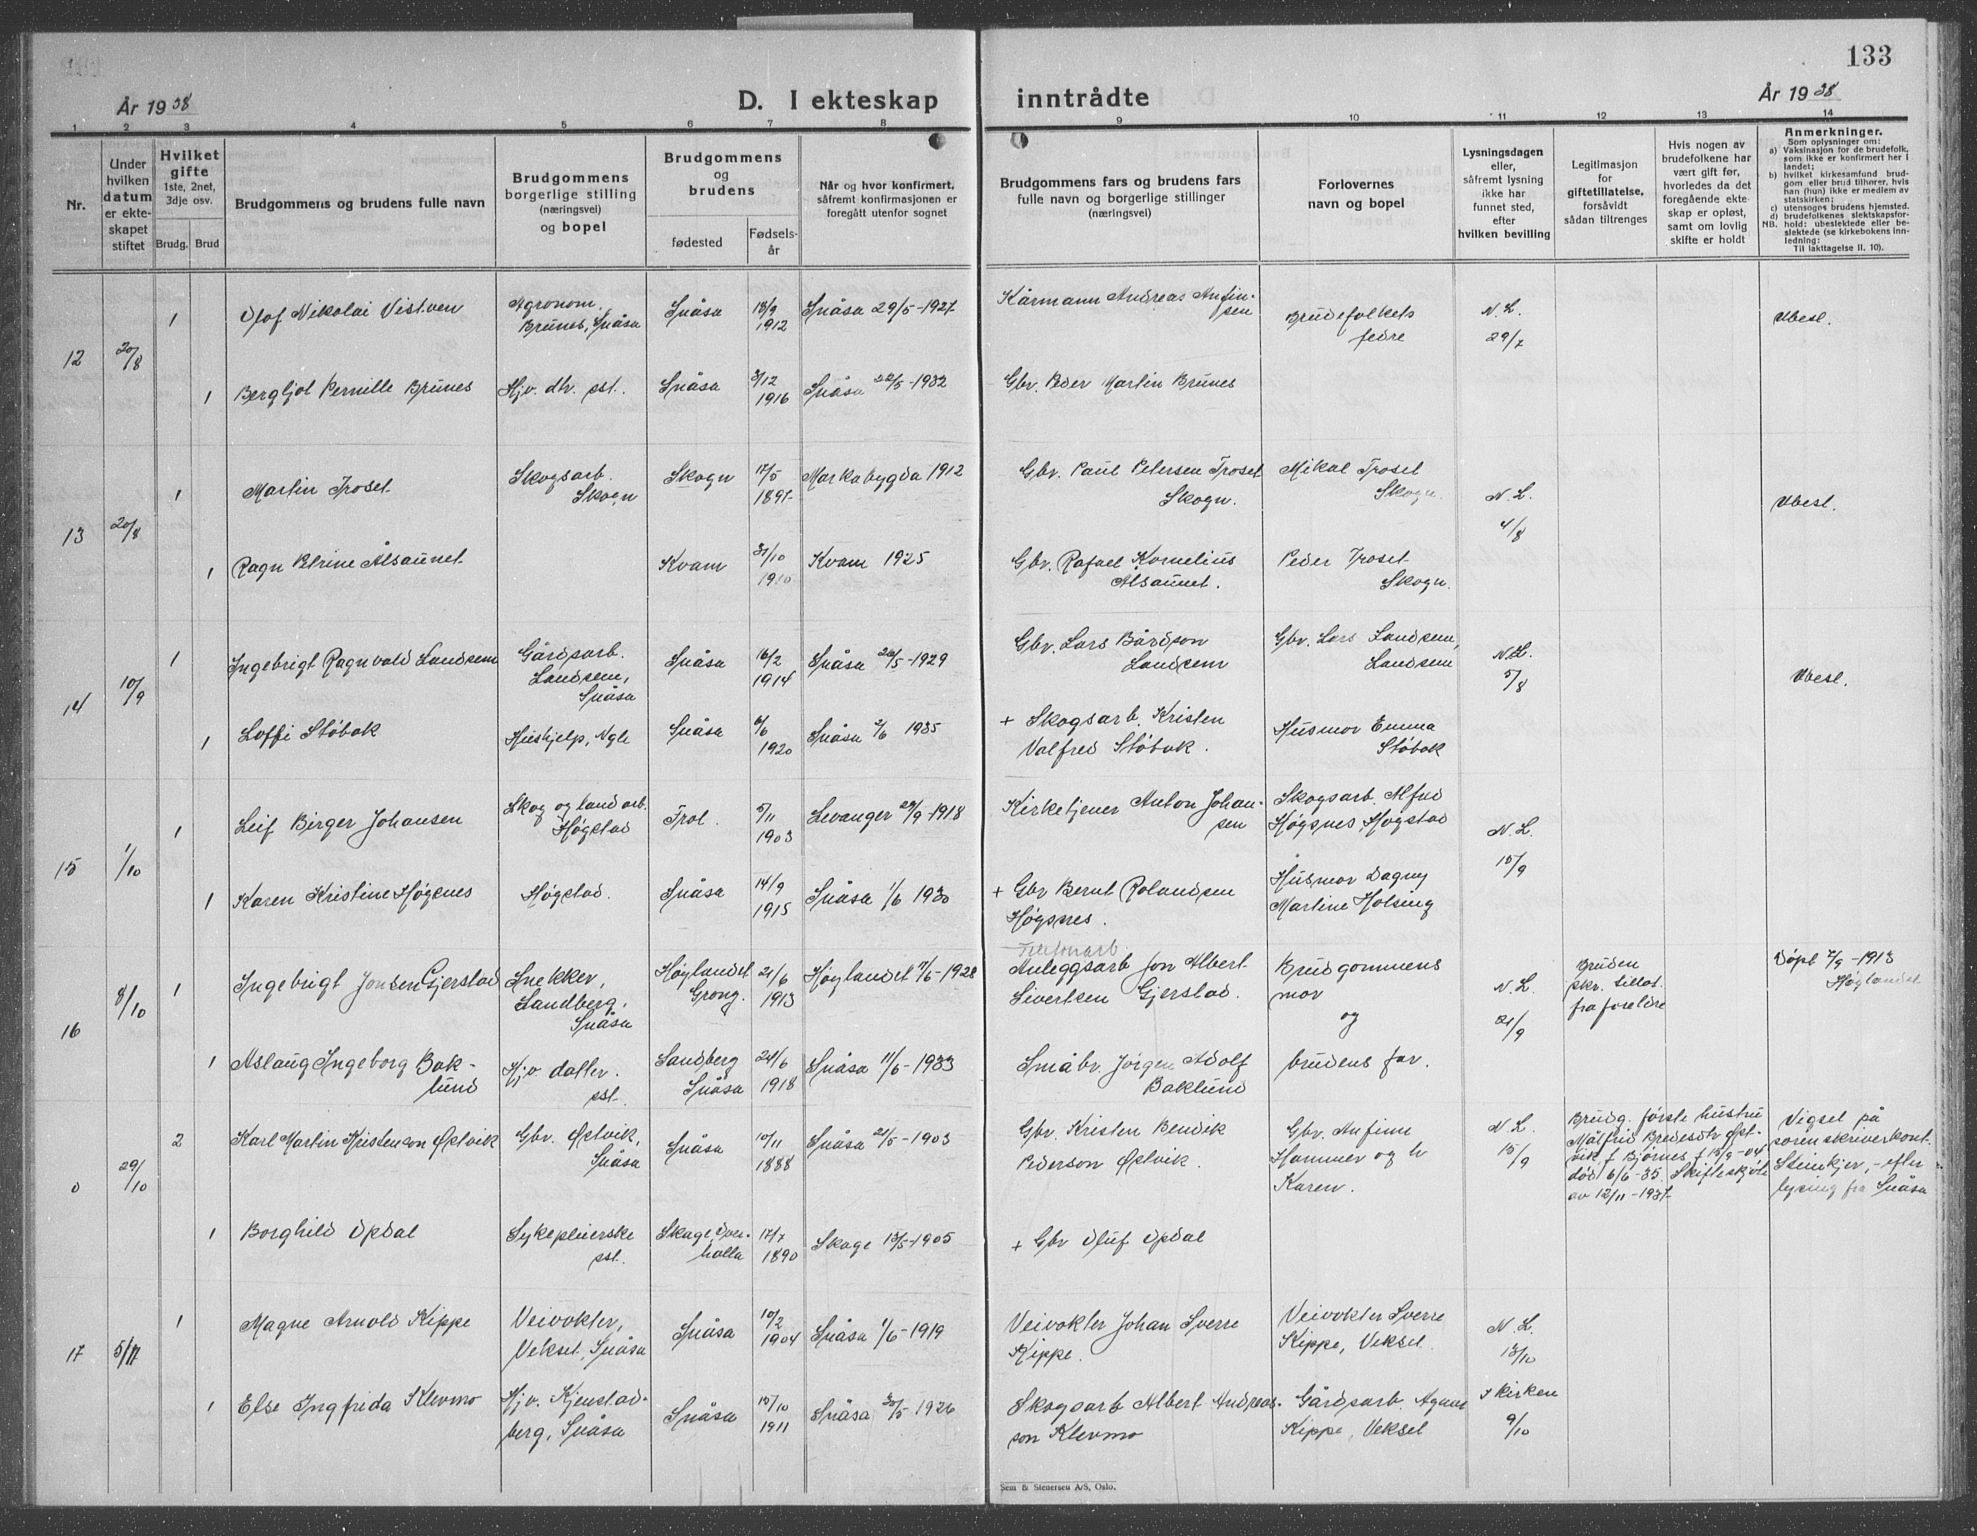 133
År 1938
D. I ekteskap inntrådte
År 1938
1 2 3 4 5 6 7 8 9 10 11 12 13 14
Nr.
Under
hvilken
datum
er ekte-
skapet
stiftet
Hvilket
gifte
1ste, 2net,
3dje osv.
Brudg. Brud
Brudgommens og brudens fulle navn
Brudgommens
borgerlige stilling
(næringsvei)
og bopel
Brudgommens
og
brudens
fødested
Fødsels-
år
Når og hvor konfirmert,
såfremt konfirmasjonen er
foregått utenfor sognet
Brudgommens fars og brudens fars
fulle navn og borgerlige stillinger
(næringsvei)
Forlovernes
navn og bopel
Lysningsdagen
eller,
såfremt lysning
ikke har
funnet sted,
efter
hvilken bevilling
Legitimasjon
for
giftetillatelse,
forsåvidt
sådan tiltrenges
Hvis nogen av
brudefolkene har
vært gift før,
hvorledes da det
foregående ekte-
skap er opløst,
samt om lovlig
skifte er holdt
Anmerkninger.
Som oplysninger om:
a) Vaksinasjon for de brudefolk,
som ikke er konfirmert her i
landet;
b) hvilket kirkesamfund brud-
gom eller brud tilhører, hvis
han (hun) ikke er medlem av
statskirken;
c) utensogns brudens hjemsted.
d) brudefolkenes slektskapsfor-
NB. hold: ubeslektede eller be-
slektede (se kirkebokens inn-
ledning:
Til iakttagelse II. 10).
12 20/8
1 Olof Nikolai Vistven
Agronom.
Brunes, Snåsa
Snåsa
13/9
1912
Snåsa 29/5-1927
Kårmann Andreas Anfin-
sen
Brudefolkets
fedre
N. L.
29/7
Ubesl.
1 Bergljot Pernille Brunes
Hjv. dtr. sst.
Snåsa
3/12
1916
Snåsa 22/5-1932
Gbr. Peder Martin Brunes
13 20/8
1 Martin Troset
Skogsarb.
Skogn
Skogn
17/5
Markabygda 1912
Gbr. Paul Petersen Troset
Skogn.
Mikal Troset
Skogn.
N. L.
4/8
Ubesl.
1 Ragn Petrine Alsaunet
Kvam
31/10
1910
Kvam 1925
Gbr. Rafael Kornelius
Alsaunet.
Peder Troset
Skogn.
14 10/9
1 Ingebrigt Ragnvald Landsem
Gårdsarb.
Landsem,
Snåsa
Snåsa
16/2
1914
Snåsa 26/5-1929
Gbr. Lars Bårdson
Landsem
Gbr. Lars Landsem,
Landsem
N. L.
5/8
Ubesl.
1 Loffi Støbak
Hushjelp, Ngle
Snåsa
6/6
1920
Snåsa 2/6 1935
+ Skogsarb. Kristen
Valfred Støbak.
Husmor Emma
Støbak
15 1/10
1 Leif Birger Johansen
Skog og landarb.
Høgstad
Frol.
5/11
1903
Levanger 29/9-1918
Kirketjener Anton Johan-
sen
Skogsarb. Alfred
Høgsnes, Høgstad
N. L.
15/9
1 Karen Kristine Høgsnes
Høgstad.
Snåsa
14/9
1915
Snåsa 1/6 1930
+ Gbr Bernt Rolandsen
Høgsnes.
Husmor Dagny
Martine Holsing
16 8/10
1 Ingebrigt Jonsen Gjerstad
Snekker,
Landberg,
Snåsa
Høylandet
Grong.
21/6
1913
Høylandet 7/6-1928
Telefonarb.
Anleggsarb Jon Albert
Sivertsen Gjerstad.
Brudgommens
mor
og
N. L.
21/9
Bruden
skr. tillat.
fra foreldre
Døpt 7/9-1913
Høylandet
1 Aslaug Ingeborg Bak-
lund
Hjv. datter.
sst.
Landberg
Snåsa
24/6
1918
Snåsa 11/6-1933
Småbr. Jørgen Adolf
Baklund
brudens far.
0 29/10
2 Karl Martin Kristenson Østvik
Gbr. Østvik,
Snåsa
Snåsa
10/11
1888
Snåsa 21/5-1903
Gbr. Kristen Bendik
Pederson Østvik.
Gbr. Anfinn
Hammer og h
Karen.
N. L.
15/9
Brudg. første hustru
Målfrid Bredesdtr Øst-
vik f Bjørnes f 15/9-04
død 6/6-35. Skifteskjøte
av 12/11-1937
Vigsel på
sorenskriverkont.
Steinkjer, - efter
lysing fra Snåsa
1 Borghild Opdal
Sykepleierske
sst.
Skage, Over-
halla
17/7
1890
Skage 13/5-1905
+ Gbr Oluf Opdal
17 5/11
1 Magne Arnold Kippe
Veivokter,
Veksel, Snåsa
Snåsa
10/2
1904
Snåsa 1/6-1919
Veivokter Johan Sverre
Kippe.
Veivokter Sverre
Kippe, Veksel.
N. L.
13/10
1 Else Ingfrida Klevmo
Hjv. Kjenstad-
berg, Snåsa
Snåsa
15/10
1911
Snåsa 30/5-1926
Skogsarb Albert Andreas-
son Klevmo
Gårdsarb. Agnar
Kippe, Veksel
I kirken
9/10
Sem & Stenersen A/S, Oslo.